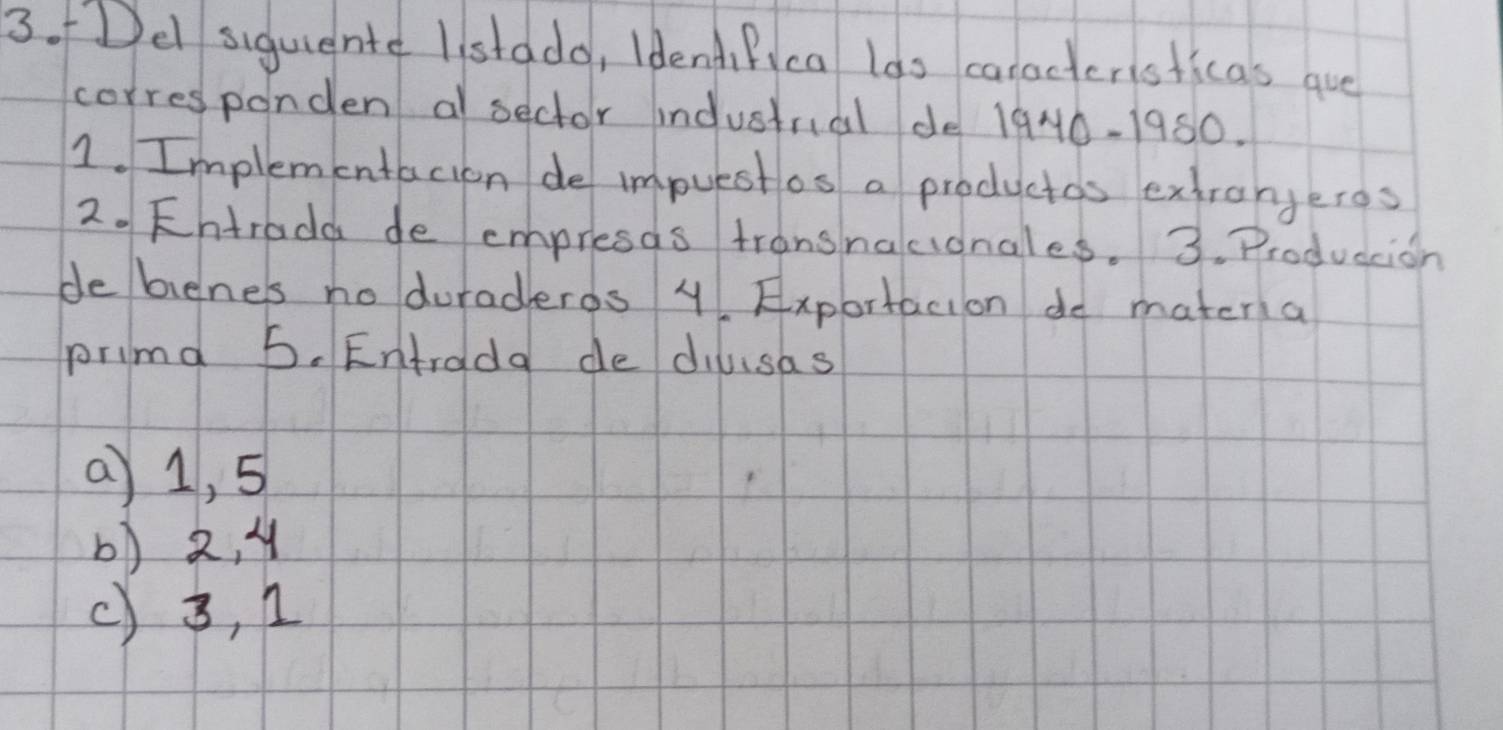 3.- Del siguiente listado, Identifica las caracteristicas que
corresponden al sector industrial de 1940-1980.
1. Implementacion de impuestos a productos extranjeros
2. Entrada de empresas transnacionales. 3. Producción
de bienes no duraderos 4. Exportacion de materia
prima 5. Entrada de divisas
a) 1, 5
b) 2, 4
c) 3, 1